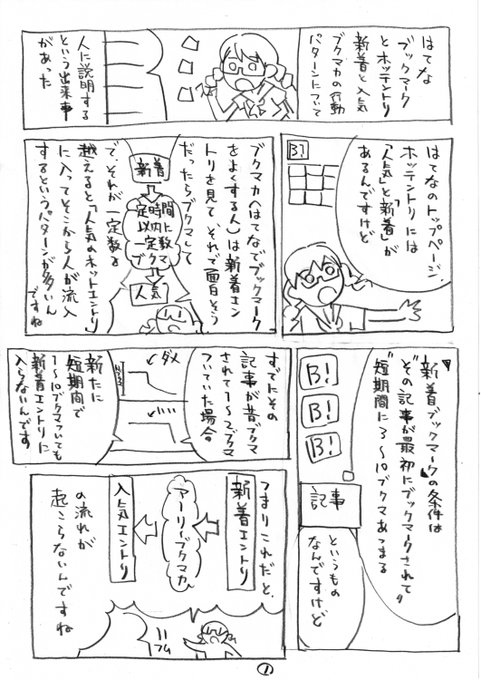 はてな
ブックマーク
とホッテントリ
新着と人気
ブクマカの行動
パターンについて
人に説明する
という出来事
があった
はてなのトップページ、
ホッテントリには
「人気」と「新着」が
あるんですけど
B!
ブクマカ(はてなでブックマーク
をよくする人)は新着エン
トリを見て それで面白そう
だったらブクマして
新着
一定時間
以内に
一定数
ブクマ
人気
で、それが一定数を
越えると「人気のホットエントリ」
に入ってそこから人が流入
するというパターンが多いん
ですね
新着ブックマークの条件は
"その記事が最初にブックマークされて"
"短期間に3〜10ブクマあつまる
B!
B!
B!
記事
というもの
なんですけど
すでにその
記事が昔ブクマ
されて1〜2ブクマ
ついていた場合
ダメ
新たに
短期間で
1〜10ブクマついても
新着エントリに
入らないんです
つまりこれだと、
新着エントリ
アーリーブクマカ
人気エントリ
の流れが
起こらないんですね
フム
1